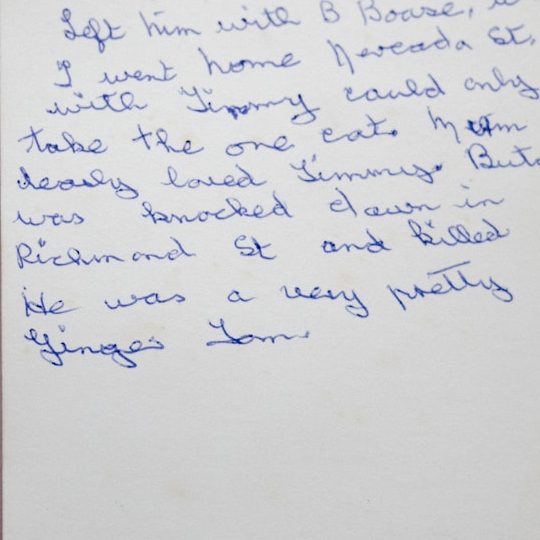 Left him with B Boase, w
I went home Nevada St,
with Timmy could only
take the one cat. Mum
dearly loved Timmy. But
was knocked down in
Richmond St and killed
He was a very pretty
Ginger Tom.